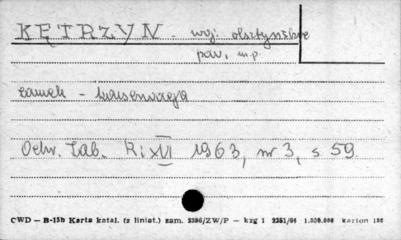 KĘTRZYN - woj. olsztyńskie
pow. m.p.
zamek - konserwacja
Ochr. Zab. R: XVI 1963, nr 3, s 59
CWD — B-15b Karta katal. (z liniat.) zam. 2396/ZW/P — kzg 1 2251/66 1.500.000 karton 180